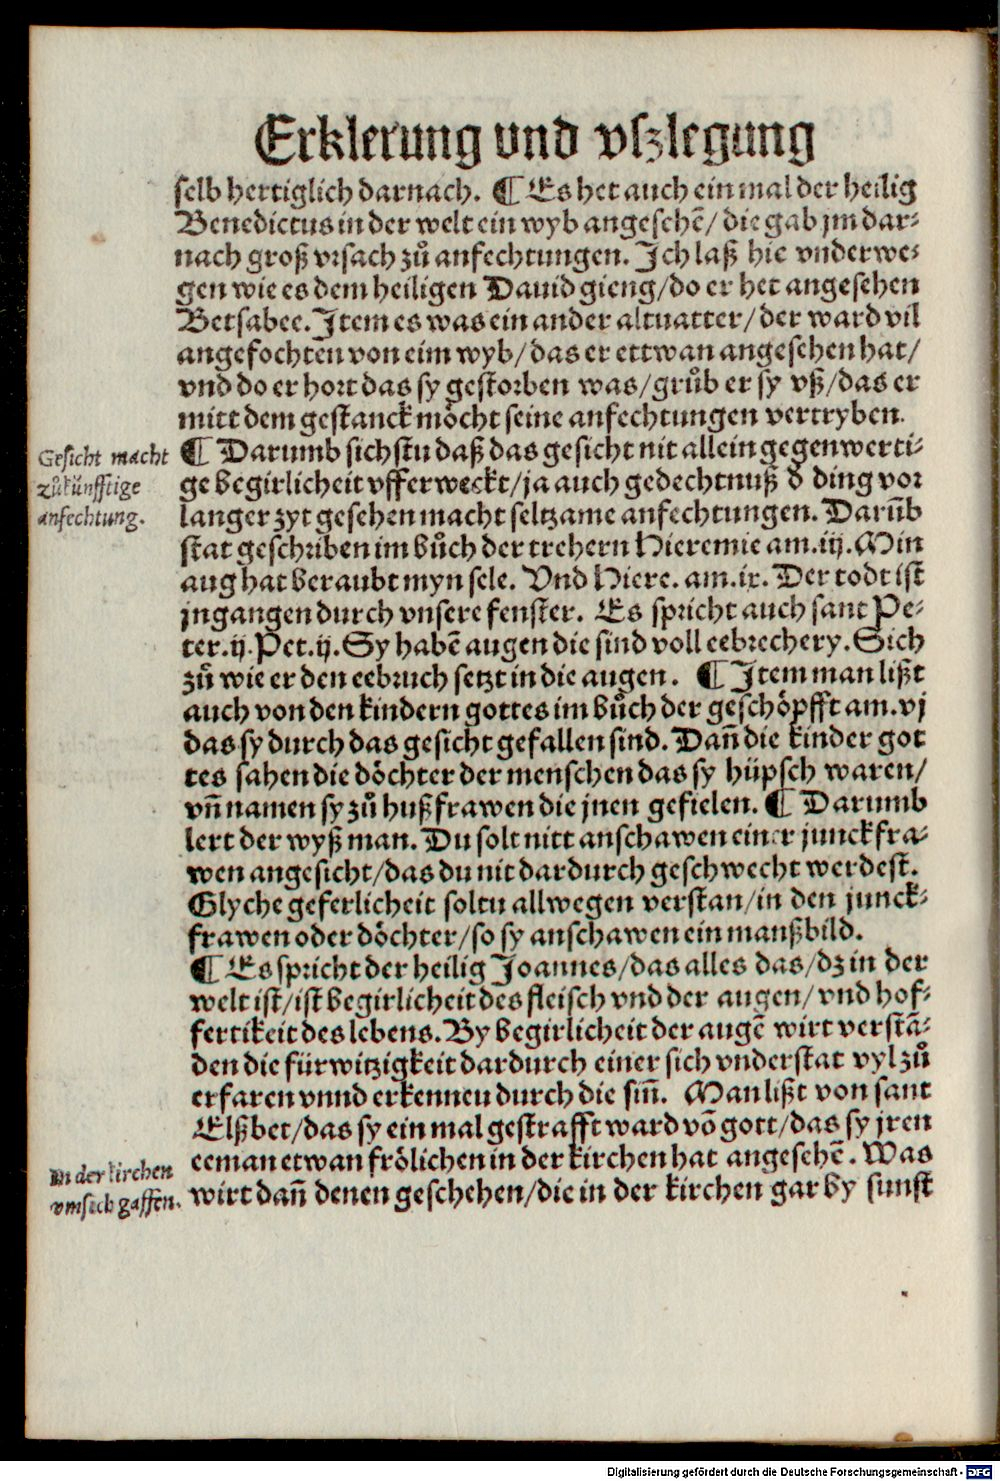 Erklerung vnd vſzlegung
ſelb hertiglich darnach. ¶ Es het auch ein mal der heilig
Benedictus in der welt ein wyb angeſehē/ die gab jm dar⸗
nach groß vrſach zů anfechtungen. Ich laß hie vnderwe⸗
gen wie es dem heiligen Dauid gieng/ do er het angeſehen
Betſabee. Item es was ein ander altuatter/ der ward vil
angefochten von eim wyb/ das er ettwan angeſehen hat/
vnd do er hort das ſy geſtorben was/ grůb er ſy vß/ das er
mitt dem geſtanck mòcht ſeine anfechtungen vertryben.
Geſicht macht
zůkünfftige
anfechtung.
¶ Darumb ſichſtu daß das geſicht nit allein gegenwerti⸗
ge begirlicheit vfferweckt/ ja auch gedechtnuß d̄ ding vor
langer zyt geſehen macht ſeltzame anfechtungen. Darūb
ſtat geſchriben im bůch der trehern Hieremie am.iij. Min
aug hat beraubt myn ſele. Vnd Hiere. am.ix. Der todt iſt
jngangen durch vnſere fenſter. Es ſpricht auch ſant Pe⸗
ter.ij.Pet.ij. Sy habē augen die ſind voll eebrechery. Sich
zů wie er den eebruch ſetzt in die augen. ¶ Item man lißt
auch von den kindern gottes im bůch der geſchöpfft am.vj
das ſy durch das geſicht gefallen ſind. Dañ die kinder got
tes ſahen die döchter der menſchen das ſy hüpſch waren/
vñ namen ſy zů hußfrawen die jnen gefielen. ¶ Darumb
lert der wyß man. Du ſolt nitt anſchawen einer junckfra⸗
wen angeſicht/ das du nit dardurch geſchwecht werdeſt.
Glyche geferlicheit ſoltu allwegen verſtan/ in den junck⸗
frawen oder döchter/ ſo ſy anſchawen ein manßbild.
¶ Es ſpricht der heilig Joannes/ das alles das/ dz in der
welt iſt/ iſt begirlicheit des fleiſch vnd der augen/ vnd hof⸗
fertikeit des lebens. By begirlicheit der augē wirt verſtā⸗
den die fürwitzigkeit dardurch einer ſich vnderſtat vyl zů
erfaren vnnd erkennen durch die ſiñ. Man lißt von ſant
Elßbet/ das ſy ein mal geſtrafft ward vō gott/ das ſy jren
eeman etwan frölichen in der kirchen hat angeſehē. Was
In der kirchen
vmſich gaffen.
wirt dañ denen geſchehen/ die in der kirchen gar by ſunſt
Digitalisierung gefördert durch die Deutsche Forschungsgemeinschaft - DFG